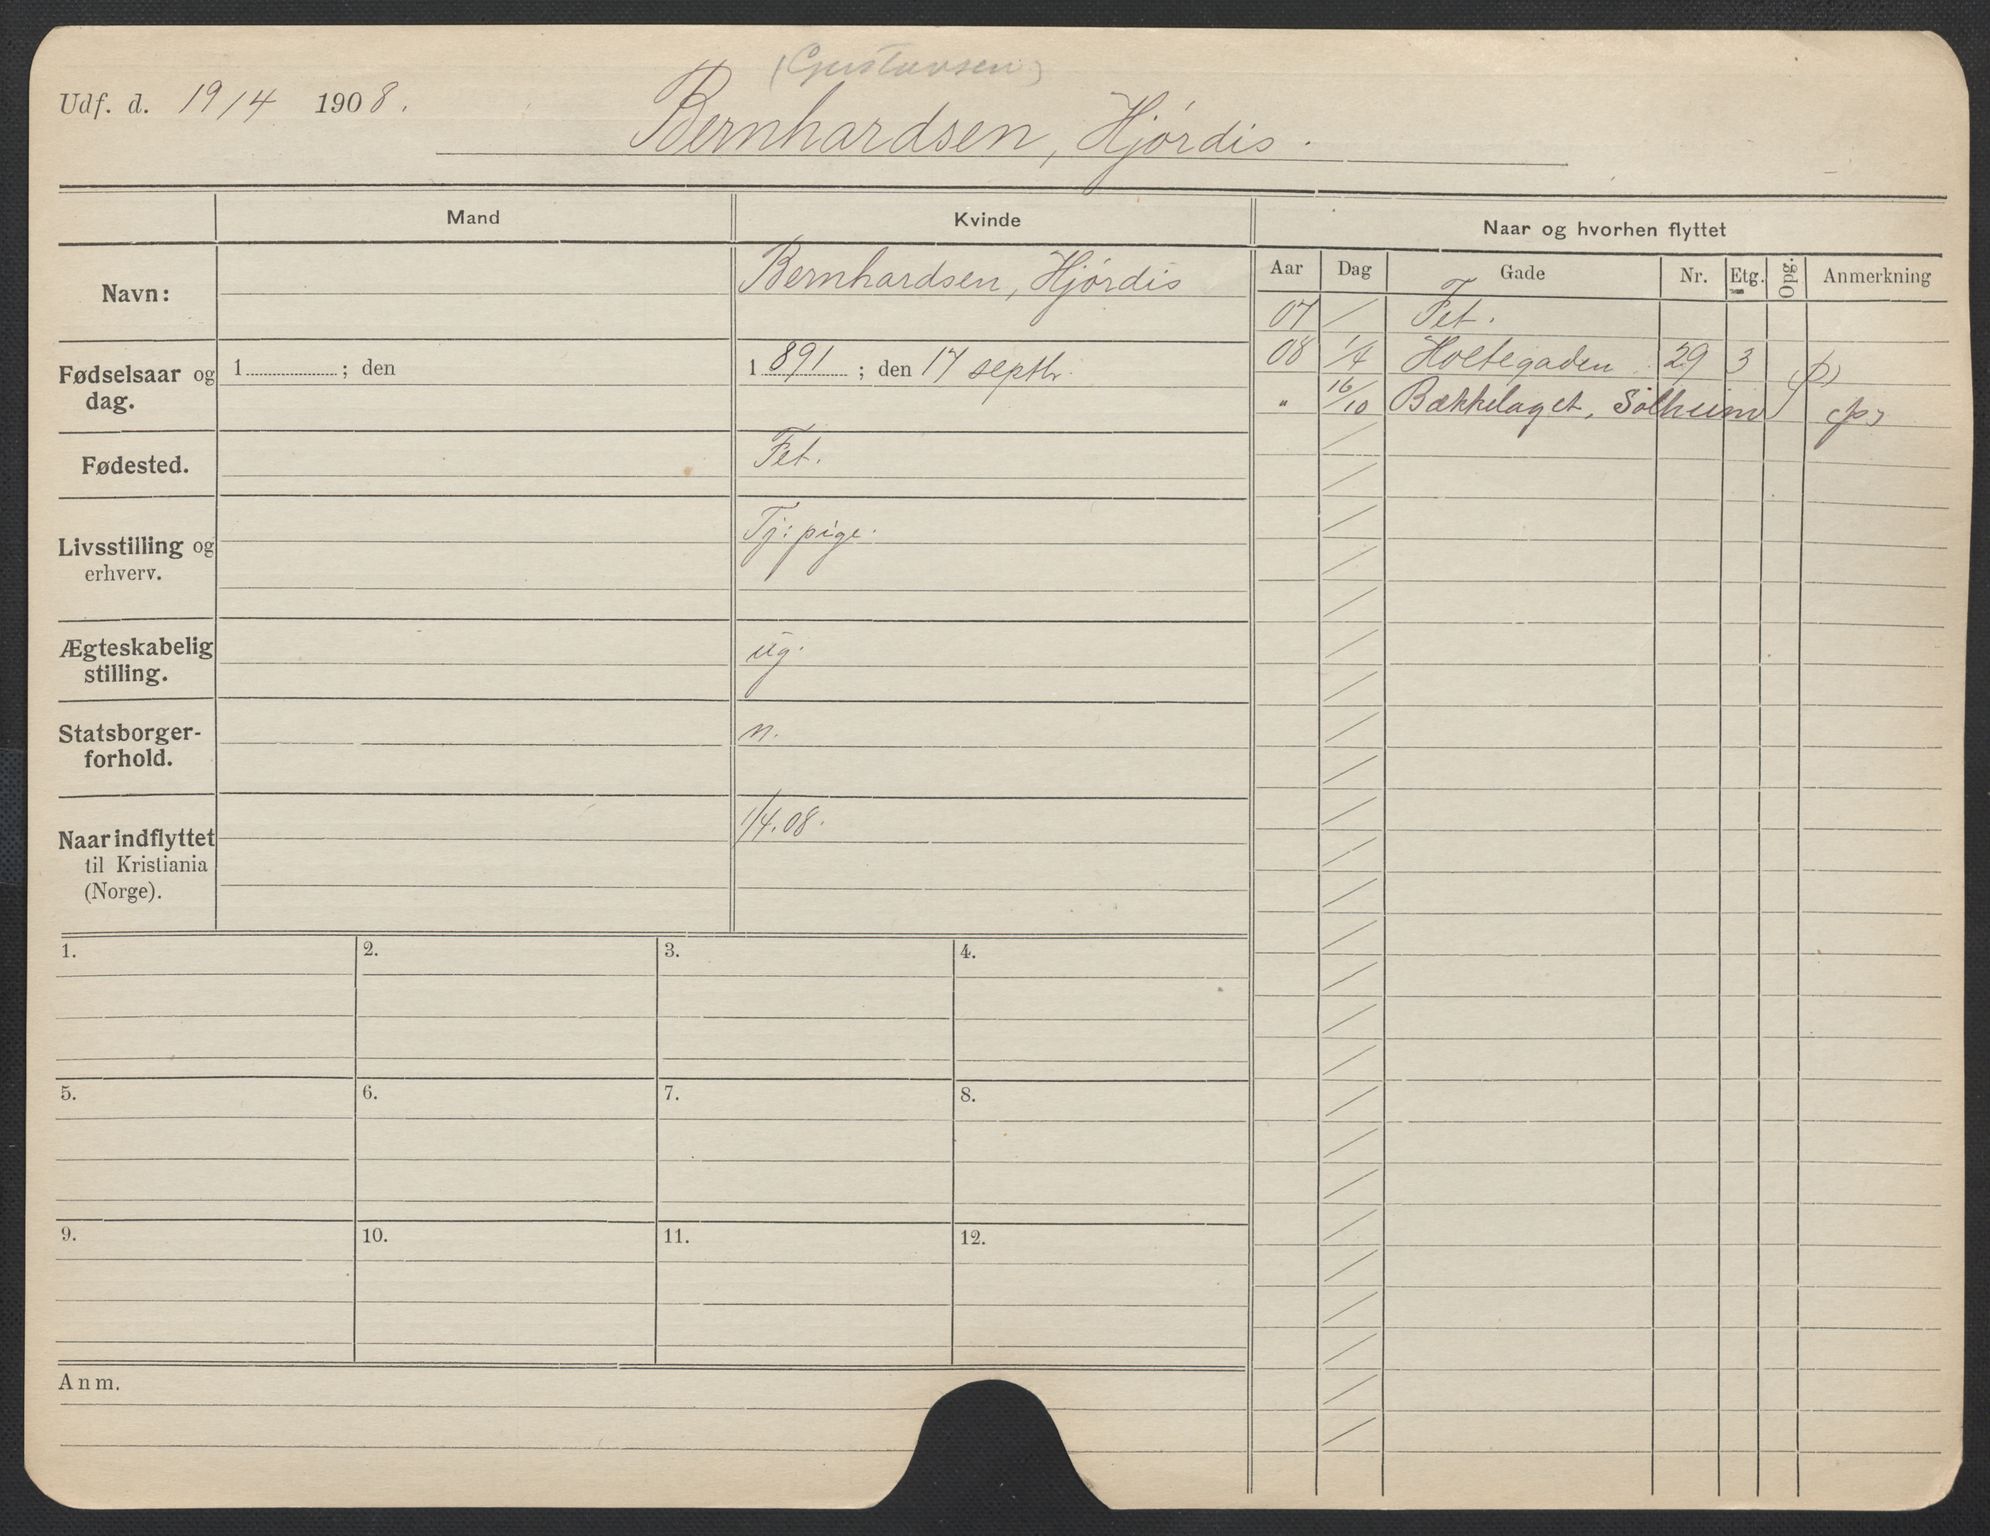 (Gustavsen)
Udf. d. 19/4 1908.
Bernhardsen, Hjørdis.
Mand
Kvinde
Naar og hvorhen flyttet
Aar Dag Gade Nr. Etg. Opg. Anmerkning
Navn:
Bernhardsen, Hjørdis
07 / Fet.
Fødselsaar og dag.
1 ; den
1891 ; den 17 septbr.
08 1/4 Holtegaden 29 3 (p)
" 16/10 Bækkelaget, Solheim (p)
Fødested.
Fet.
Livsstilling og erhverv.
Tj: pige.
Ægteskabelig stilling.
ug.
Statsborger-
forhold.
n.
Naar indflyttet
til Kristiania
(Norge).
1/4.08.
1. 2. 3. 4.
5. 6. 7. 8.
9. 10. 11. 12.
Anm.